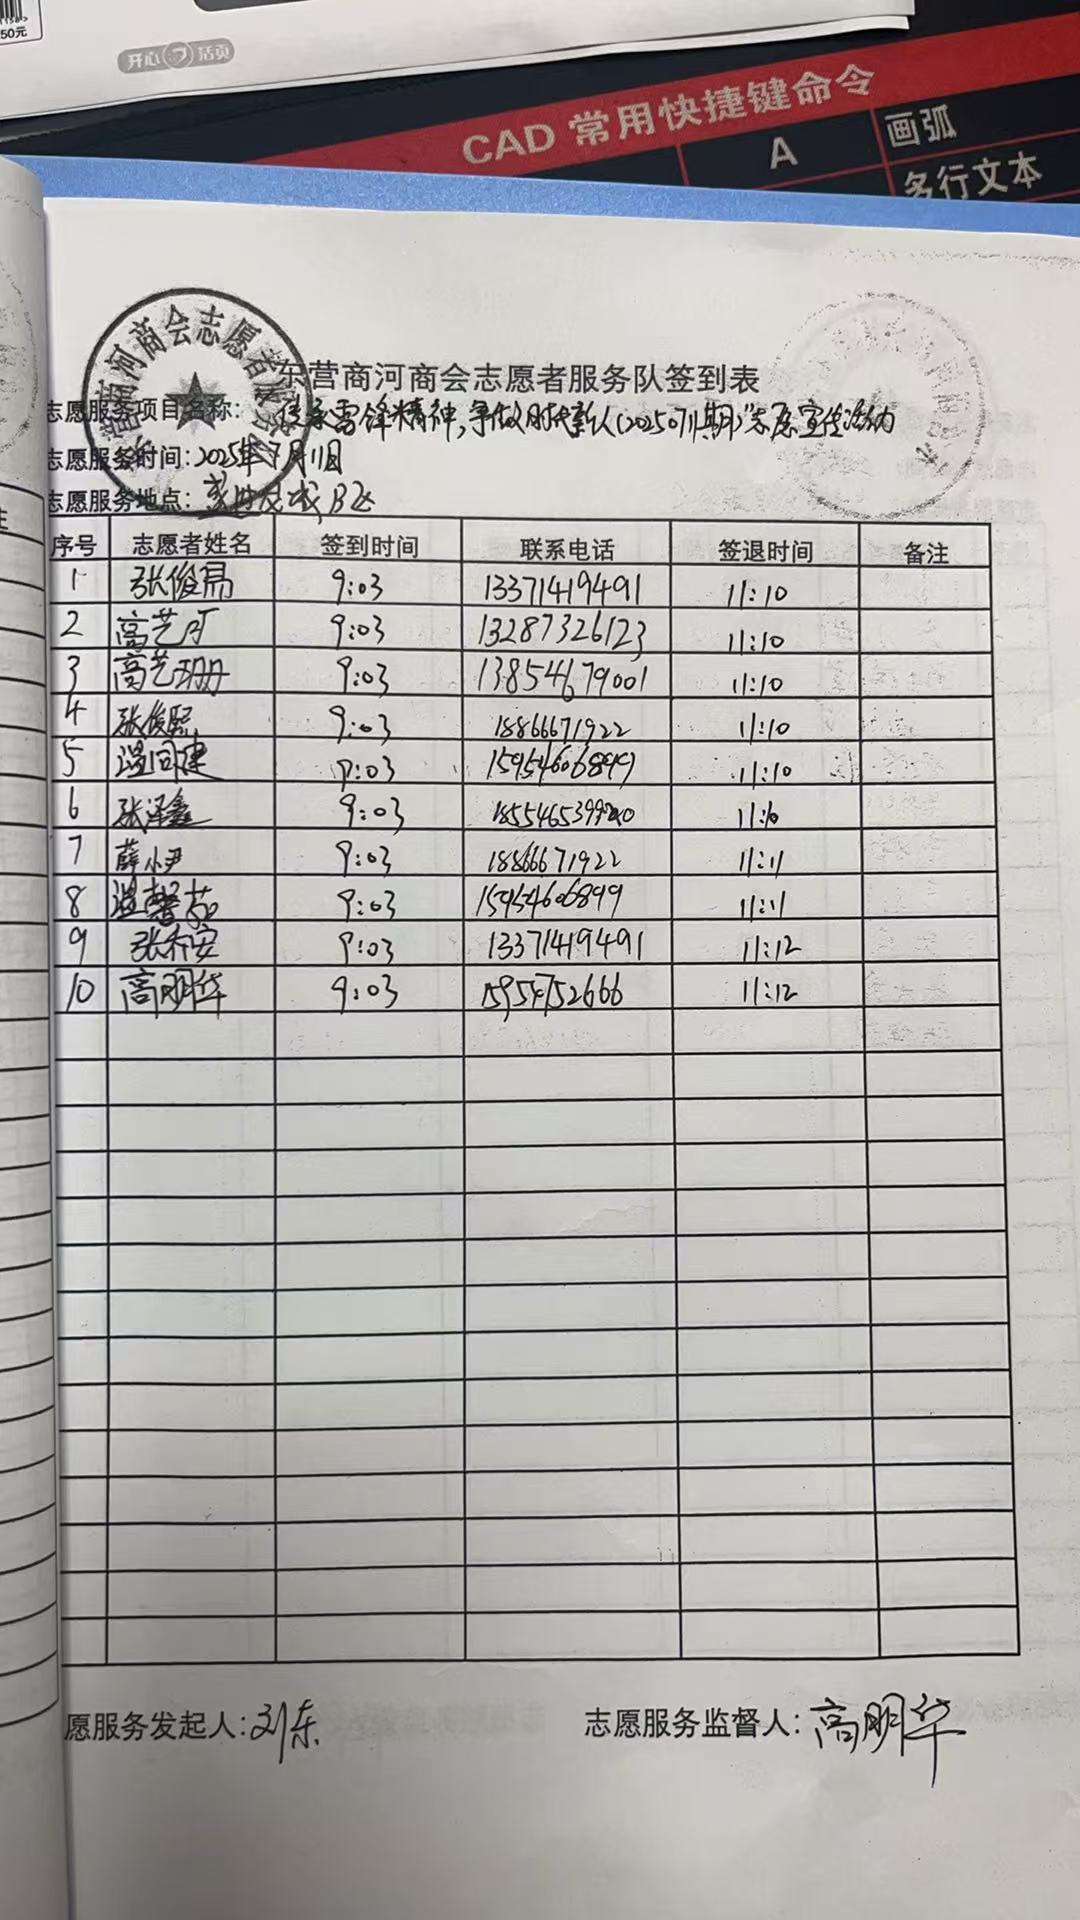 50元
开心 活页
CAD 常用快捷键命令
A 画弧
多行文本
商河商会志愿者服务
东营商河商会志愿者服务队签到表
志愿服务项目名称: 传承雷锋精神,争做时代新人(2025 期)"志愿宣传活动
志愿服务时间:2025年 月11日
志愿服务地点: B区
序号 志愿者姓名 签到时间 联系电话 签退时间 备注
1 张俊 9:03 13371419491 11:10
2 高艺 9:03 13287326123 11:10
3 高艺珊 9:03 13854679001 11:10
4 张俊熙 9:03 18866671922 11:10
5 温同建 9:03 15954606899 11:10
6 张泽鑫 9:03
7 薛小尹 9:03 18866671922 11:11
8 温馨茹 9:03 15954606899 11:11
9 张乔安 9:03 13371419491 11:12
10 高明华 9:03 15954752666 11:12
愿服务发起人:刘东 志愿服务监督人:高明华